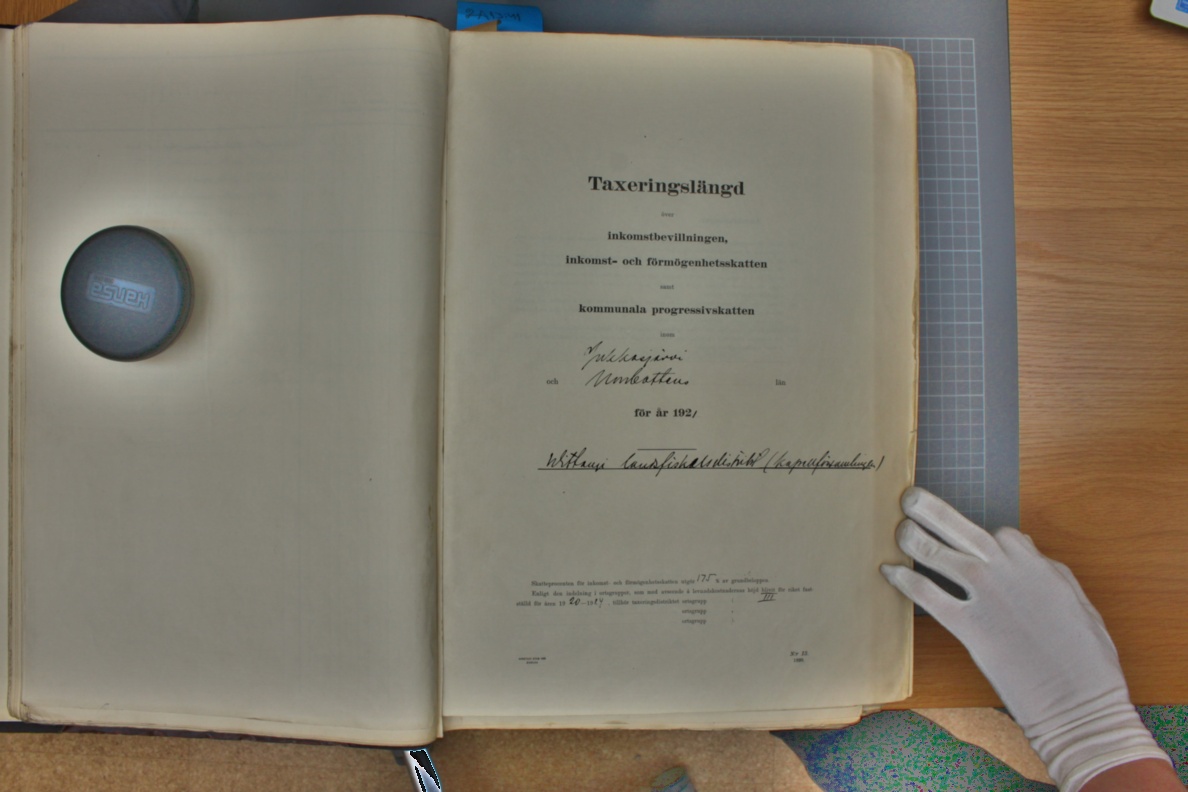 Taxeringslängd
över
inkomstbevillningen,
inkomst- och förmögenhetsskatten
samt
kommunala progressivskatten
inom
Jukkasjärvi
och Norrbottens län
för år 1921
Wittangi landsfiskalsdistrikt (Kapellförsamlingen)
Skatteprocenten för inkomst- och förmögenhetsskatten utgör 175 % av grundbeloppen.
Enligt den indelning i ortsgrupper, som med avseende å levnadskostnadernas höjd blivit för riket fast-
ställd för åren 1920–1924, tillhör taxeringsdistriktet ortsgrupp III
ortsgrupp
ortsgrupp
Nr 25
1920
Hansa